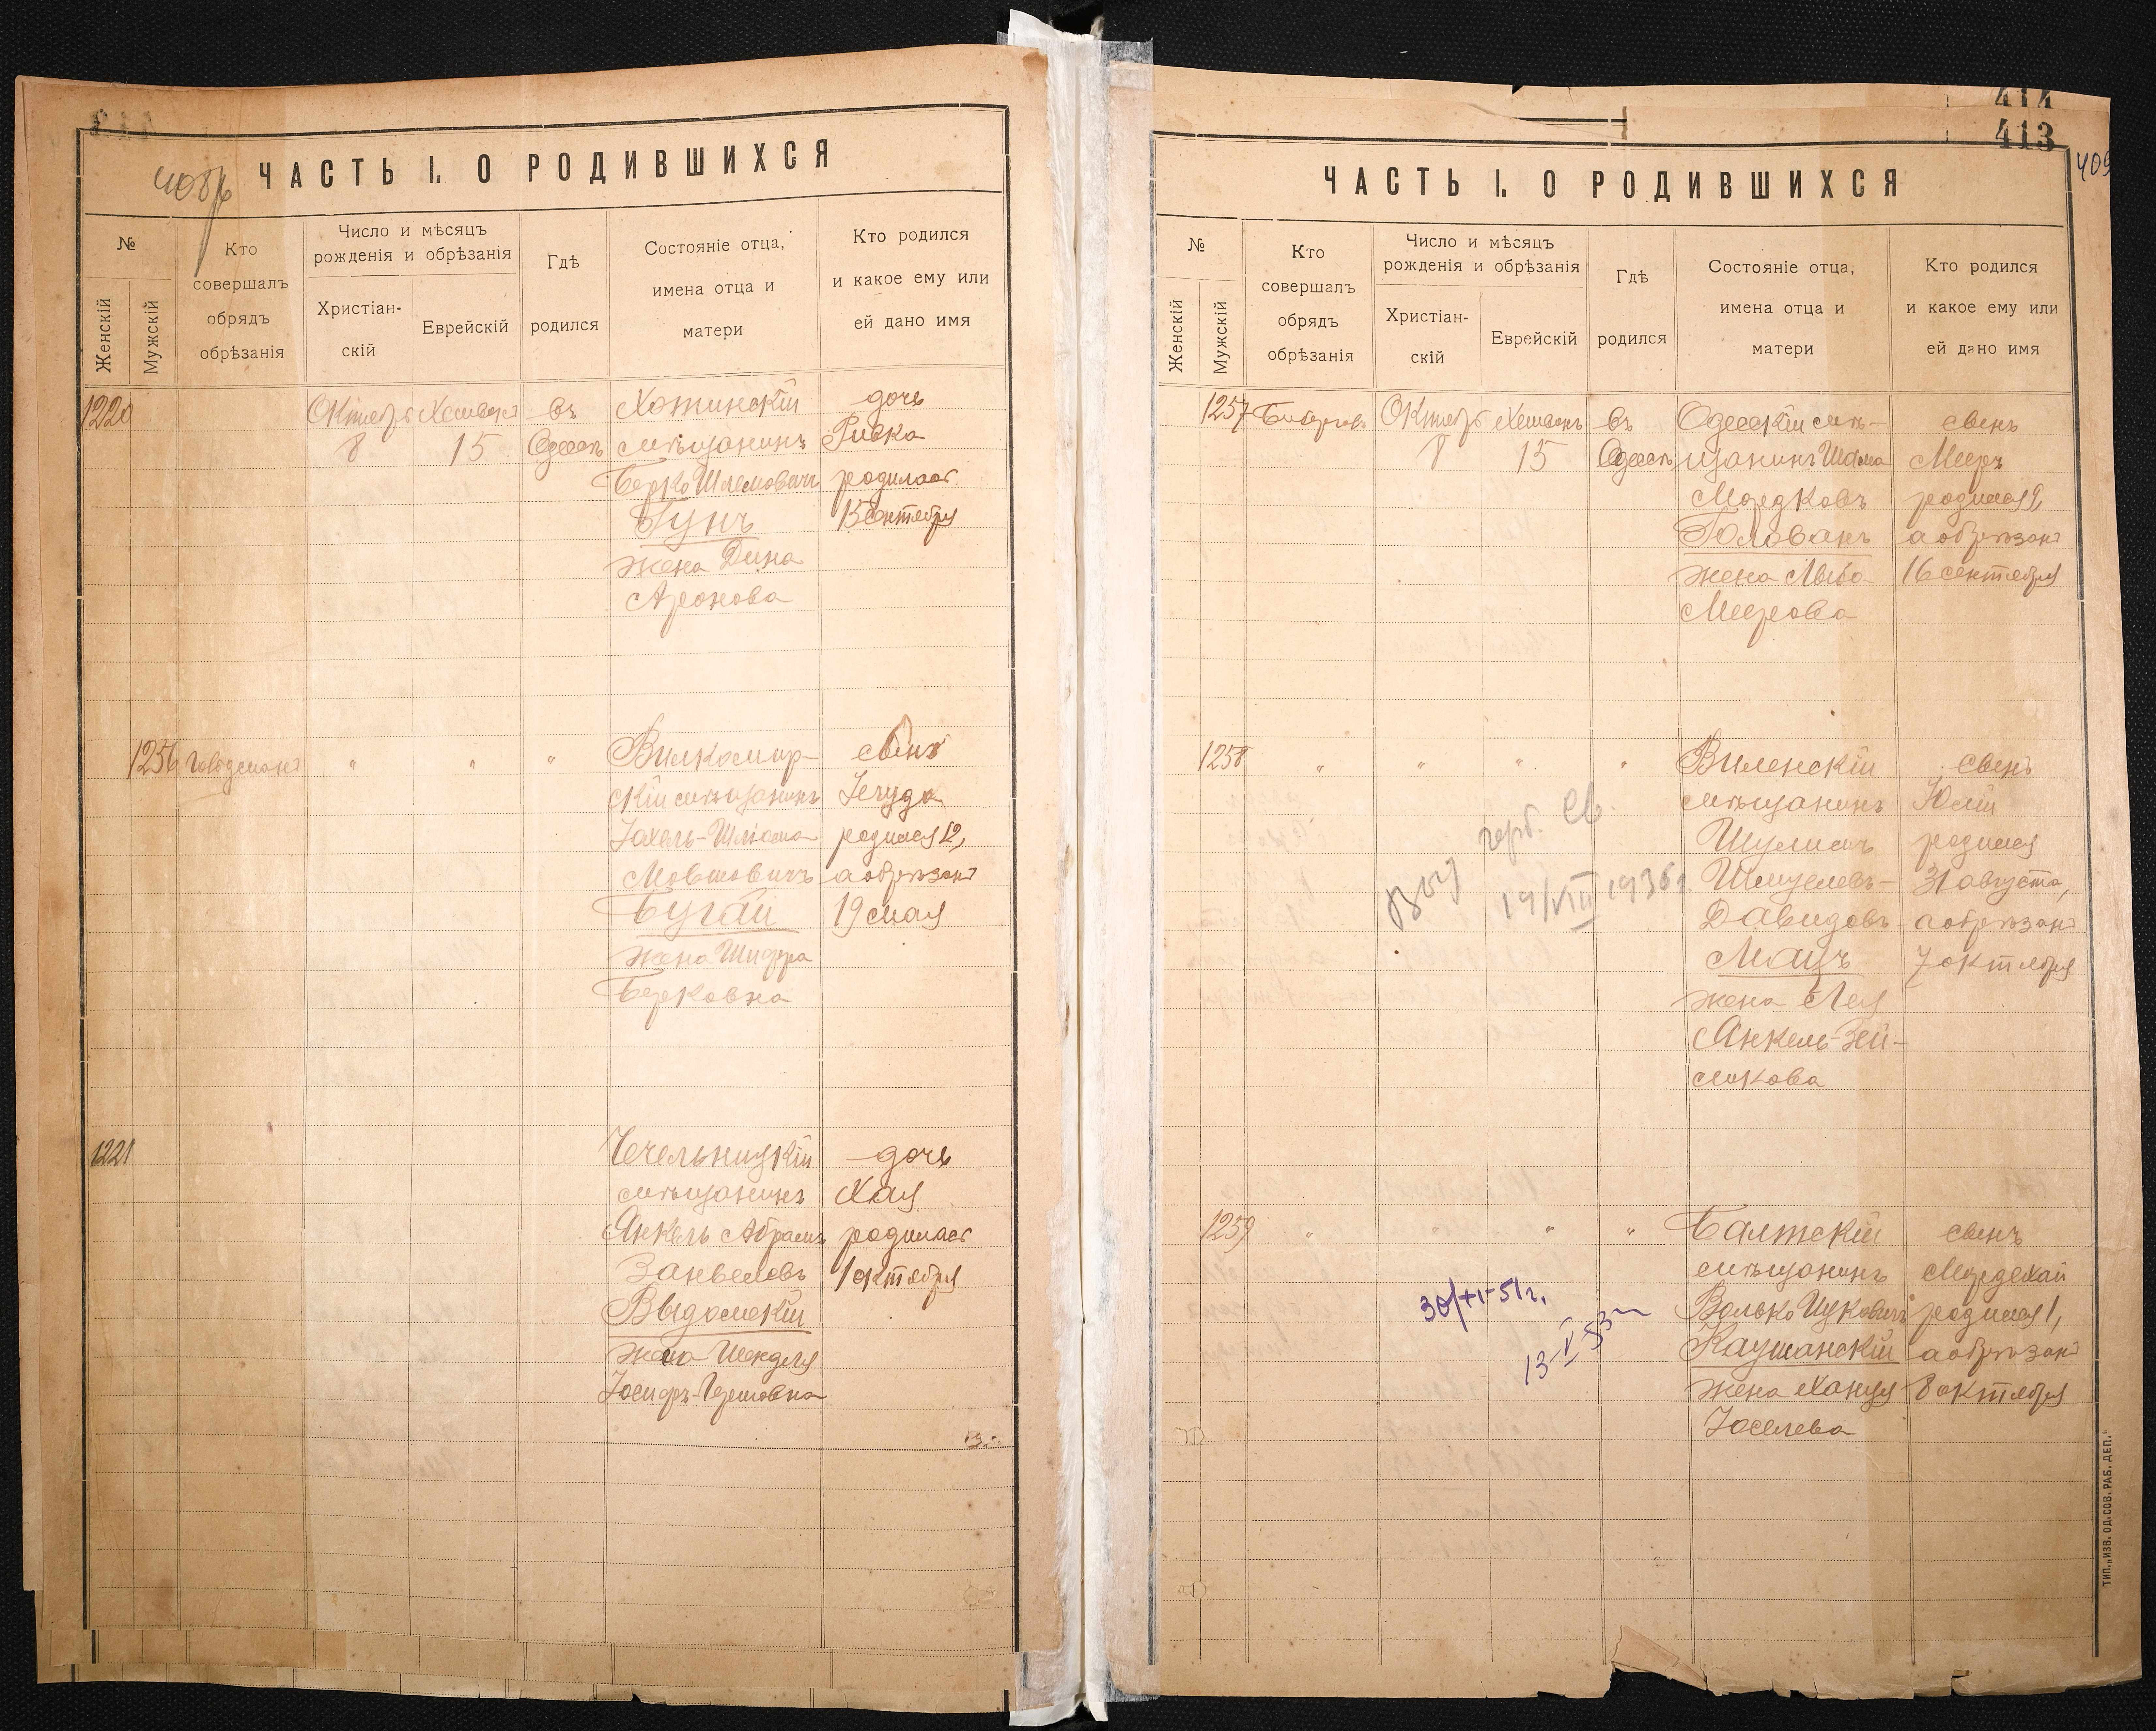 408/6
ЧАСТЬ I. О РОДИВШИХСЯ
№
Женскій
Мужскій
Кто
совершалъ
обрядъ
обрѣзанія
Число и мѣсяцъ
рожденія и обрѣзанія
Христіан-
скій
Еврейскій
Гдѣ
родился
Состояніе отца,
имена отца и
матери
Кто родился
и какое ему или
ей дано имя
1220
8
15
въ
Одессѣ
Хотинскій
мѣщанинъ
Берко Шлемовичъ
Гунъ
жена Дина
Аронова
дочь
Ривка
родилась
15 сентября
1256
"
"
"
Вилкомир-
скій мѣщанинъ
Мовшовичъ
Бугай
жена Шифра
Берковна
сынъ
Іегуда
родился 12,
а обрѣзанъ
19 мая
1221
Чечельницкій
мѣщанинъ
Янкель Абрамъ
Занвеловъ
Выдомскій
жена Шендля
дочь
Хая
родилась
1 октября
414
413
409
ЧАСТЬ I. О РОДИВШИХСЯ
№
Женскій
Мужскій
Кто
совершалъ
обрядъ
обрѣзанія
Число и мѣсяцъ
рожденія и обрѣзанія
Христіан-
скій
Еврейскій
Гдѣ
родился
Состояніе отца,
имена отца и
матери
Кто родился
и какое ему или
ей дано имя
1257
Октябрь
8
15
въ
Одессѣ
Одесскій мѣ-
щанинъ Шлема
Мордковъ
Юлованъ
жена Люба
Меерова
сынъ
Мееръ
родился 9,
а обрѣзанъ
16 сентября
1258
"
"
"
"
Виленскій
мѣщанинъ
Шулимъ
Шмулевъ-
Давидовъ
Мацъ
жена Лея
Янкель-Зей-
ликова
сынъ
Юлій
родился
31 августа,
а обрѣзанъ
7 октября
19/VIII 1936 г.
1259
"
"
"
"
Балтскій
мѣщанинъ
Волько Ицковичъ
Каушанскій
жена Ханця
Іоселева
сынъ
Мордехай
родился 1,
а обрѣзанъ
8 октября
30/XI-51 г.
13-V-53
ТИП. „ИЗВ. ОД. СОВ. РАБ. ДЕП."